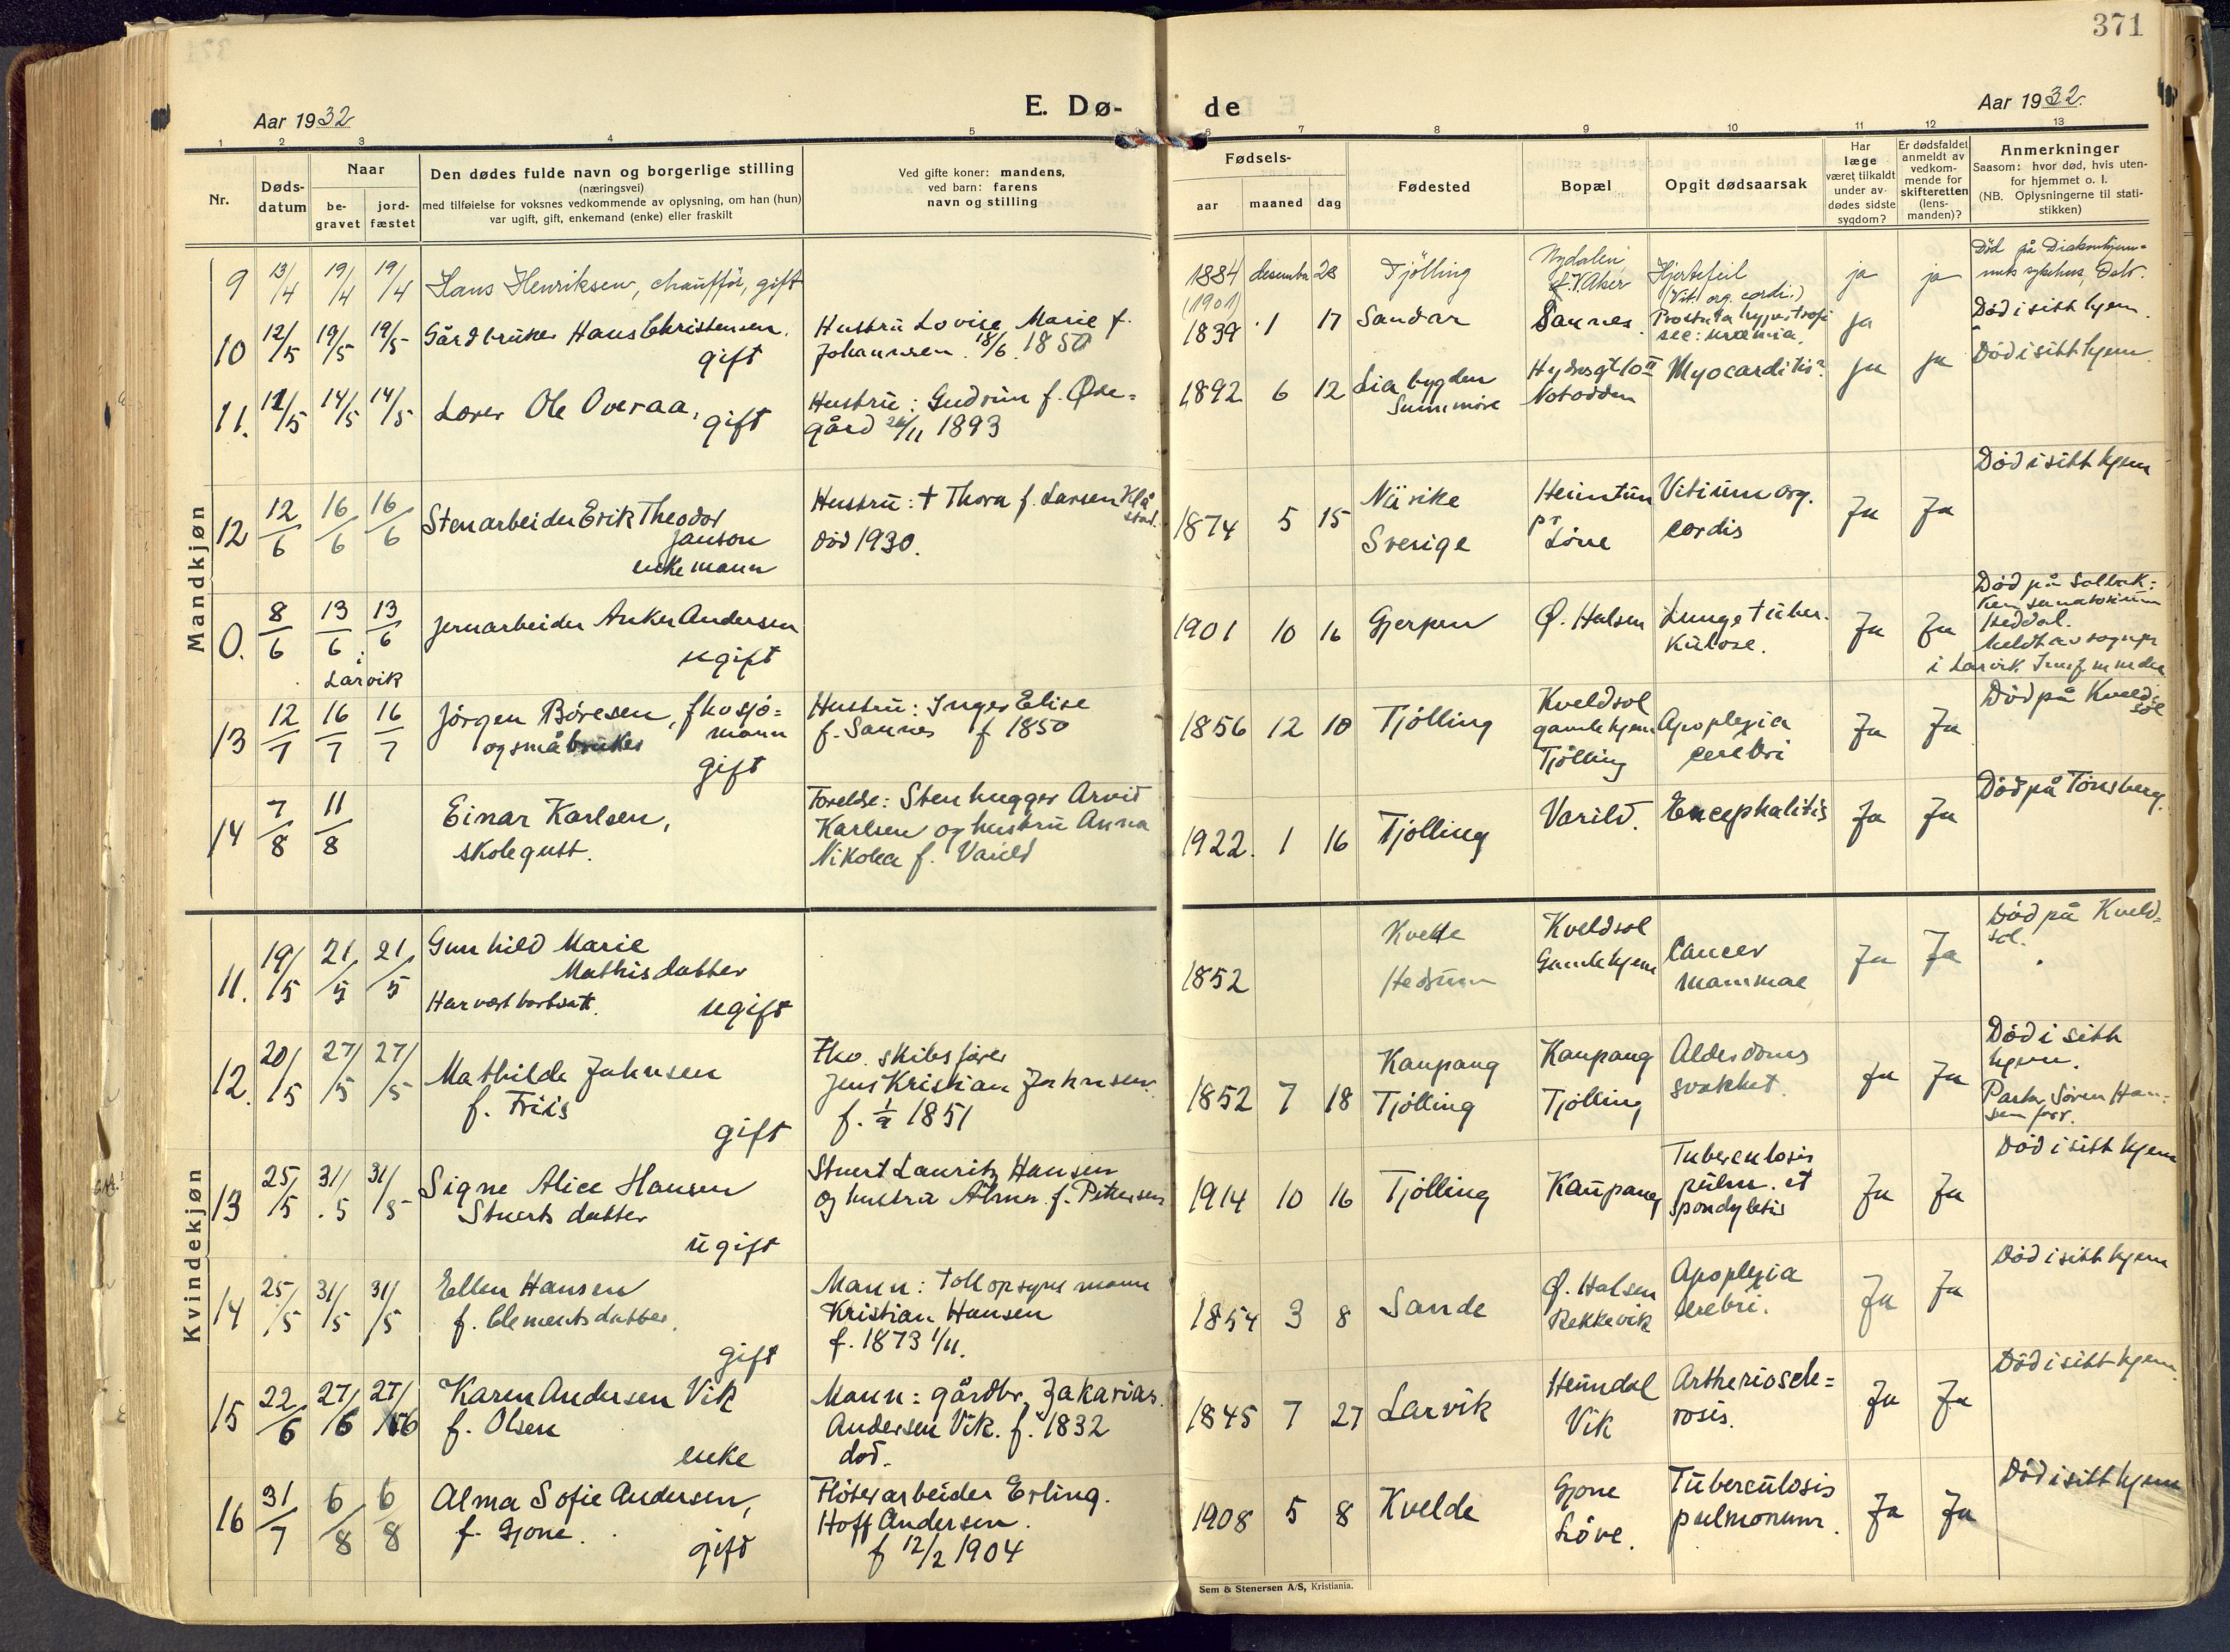 371
Aar 1932
E. Dø-
de
Aar 1932.
1 2 3 4 5 6 7 8 9 10 11 12 13
Nr.
Døds-
datum
Naar
be-
gravet
jord-
fæstet
Den dødes fulde navn og borgerlige stilling
(næringsvei)
med tilføielse for voksnes vedkommende av oplysning, om han (hun)
var ugift, gift, enkemand (enke) eller fraskilt
Ved gifte koner: mandens,
ved barn: farens
navn og stilling
Fødsels-
aar maaned dag
Fødested
Bopæl
Opgit dødsaarsak
Har
læge
været tilkaldt
under av-
dødes sidste
sygdom?
Er dødsfaldet
anmeldt av
vedkom-
mende for
skifteretten
(lens-
manden)?
Anmerkninger
Saasom: hvor død, hvis uten-
for hjemmet o. l.
(NB. Oplysningerne til stati-
stikken)
Mandkjøn
9 13/4 19/4 19/4 Hans Henriksen, chauffør, gift
1884 desember 28 Tjölling
Nydalen
V. Aker
Hjertefeil
(Vit. org. cordi.)
ja ja
Död på Diakonhjem-
mets sykehus, Oslo.
10 12/5 19/5 19/5 Gårdbruker Hans Christensen.
gift
Hustru Lovise Marie f.
Johannsen. 18/6 1850
(1901)
1839 1 17 Sandar Sannes
Prostata hypertrofi
see: uræmia.
ja
Död i sitt hjem.
11. 12/5 14/5 14/5 Lærer Ole Overaa, gift
Hustru: Gudrun f. Øde-
gård 26/11 1893
1892 6 12 Liabygden
Sunnmöre
Hydrogt 10 II
Notodden
Myocarditis?
Ja Ja
Död i sitt hjem.
12 12/6 16/6 16/6 Stenarbeider Erik Theodor
Janson
enkemann
Hustru: † Thora f. Larsen Klå
stad.
död 1930.
1874 5 15
Sverige
Heimtun
pr
Löve
Vitium org.
cordis
Ja Ja
Död i sitt hjem
0. 8/6 13/6 13/6
i
Larvik
Jernarbeider Anker Andersen
ugift
1901 10 16 Gjerpen Ø. Halsen
Lungetuber-
kulose.
Ja Ja
Död på Solbak-
ken sanatorium
Heddal.
meldt av sognepr
i Larvik
13 12/7 16/7 16/7 Jörgen Böresen, fhv sjö-
mann
og småbruker
gift
Hustru: Inger Elise
f. Sannes f 1850
1856 12 10 Tjölling
Kveldsol
gamlehjem
Tjölling
Apoplexia
cerebri
Ja Ja
Död på Kveld-
sol
14 7/8 11/8 Einar Karlsen,
skolegutt.
Forelde: Stenhugger Arvid
Karlsen og hustru Anna
Nikolea f. Varild
1922. 1 16 Tjölling Varild. Encephalitis Ja Ja
Död på Tönsberg.
Kvindekjøn
11. 19/5 21/5 21/5 Gunhild Marie
Mathisdatter
Har vært bortsatt.
ugift
1852
Kvelle
Hedrum
Kveldsol
Gamlehjem
Cancer
mammae
Ja Ja
Död på Kveld-
sol.
12. 20/5 27/5 27/5 Mathilde Jahnsen
f. Friis
gift
Fhv. skibsfører
Jens Kristian Jahnsen
f. 1/9 1851
1852 7 18
Kaupang
Tjölling
Kaupang
Tjölling
Alderdoms
svakhet.
Ja Ja
Död i sitt
hjem.
Pastor Sören Han-
sen forr.
13 25/5 31/5 31/5 Signe Alice Hansen
Stuerts datter
ugift
Stuert Lauritz Hansen
og hustru Alma f. Pettersen
1914 10 16 Tjölling Kaupang
Tuberculosis
pulm. et
spondylitis
Ja Ja
Död i sitt hjem
14 25/5 31/5 31/5 Ellen Hansen
f. Clementsdatter.
gift
Mann: tollopsynsmann
Kristian Hansen
f. 1873 1/11.
1854 3 8 Sande
Ø. Halsen
Rekkevik
Apoplexia
cerebri.
Ja Ja
Död i sitt hjem
15 22/6 27/6 27/6 Karen Andersen Vik
f. Olsen
enke
Mann: gårdbr. Zakarias
Andersen Vik. f. 1832
död.
1845 7 27 Larvik
Hemdal
Vik
Artheriosele-
rosis.
Ja Ja
Död i sitt hjem.
16 31/7 6/8 6/8 Alma Sofie Andersen,
f. Gjone.
gift
Flöterarbeider Erling.
Hoff Andersen.
f 12/2 1904
1908 5 8 Kvelde
Gjone
Löve.
Tuberculosis
pulmonum.
Ja Ja
Död i sitt hjem
Sem & Stenersen A/S, Kristiania.